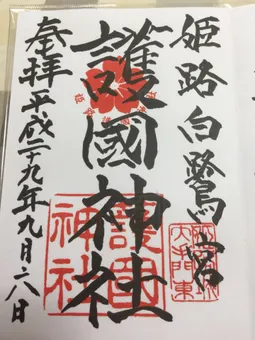 姫路白鷺宮
護國神社
奉拝 平成二十九年九月六日
護国
神社
姫路城
大手門東